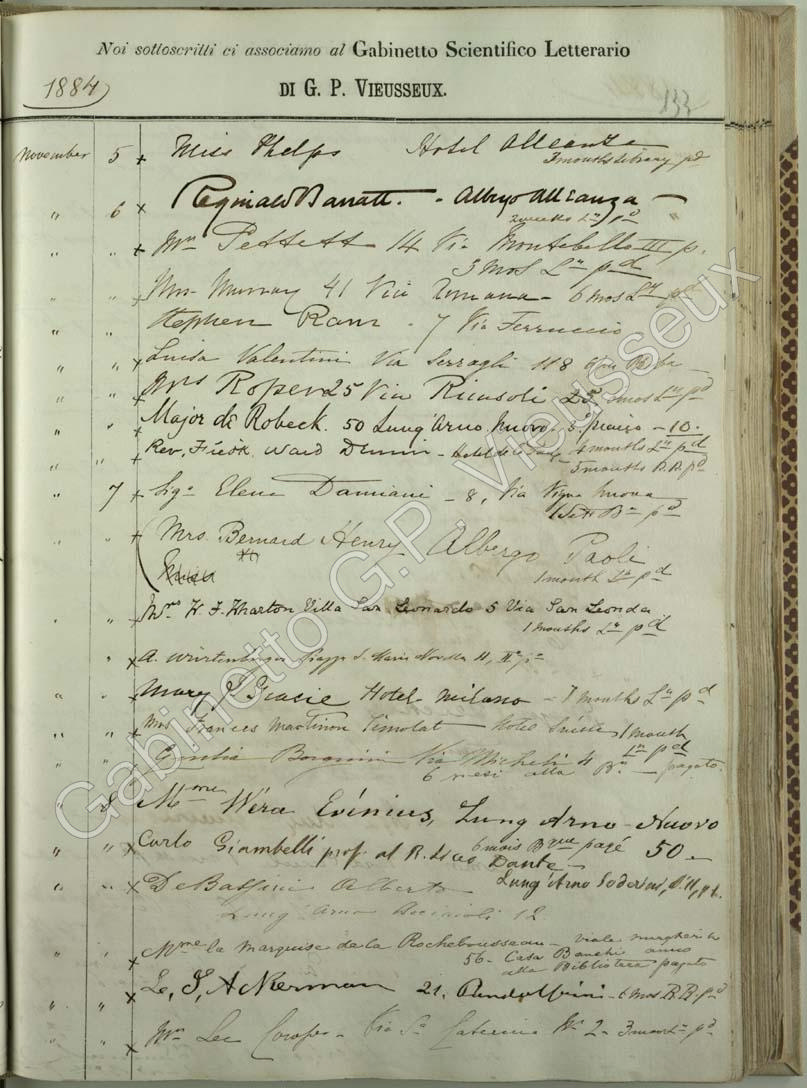 Noi sottoscritti ci associamo al Gabinetto Scientifico Letterario
1884
DI G. P. VIEUSSEUX.
133
November 5 Miss Phelps Hotel Alleanza
3 months Library pd
" 6 Reginald Barratt. - Albergo Alleanza -
2 weeks Ly pd "
" " Mrs Pettett 14 Via Montebello III p.
3 Mos Ly pd
" " Mrs Murray 41 Via Romana - 6 mos Ly pd
" " Stephen Ram - 7 Via Ferruccio
" " Luisa Valentini Via Serragli 118
" " Mrs Roper 25 Via Ricasoli 25 mos Ly pd
" " Major de Robeck. 50 Lung'Arno Nuovo, 10.
" " Rev. Fredk Ward - Hotel months Ly pd
5 months R.R. pd
" 7 Siga Elena Damiani - 8, Via Vigna Nuova
Ba pd
" Mrs. Bernard Henry Albergo Paoli
1 month Ly pd
" " Mrs H. F. Wharton Villa San Leonardo 5 Via San Leonda
1 months Ly pd
" " A. Würtenberger Piazza S. Maria Novella 11, IIo po
" " Mary Hotel Milano - months Ly pd
" " Mrs Frances Martinon Timolat - Hotel Suisse 1 month
Ly pd
" " Via Micheli 4
6 mesi alla Ba - pagato.
" 8 Mme Wéra Evénius, Lung Arno - Nuovo
6 mois Bque payé 50 -
" " Carlo Giambelli prof. al R. Liceo Dante -
Lung'Arno Soderini,
" " De Bassini Alberto
Lung'Arno Acciaioli 12
" " Mme la Marquise de la Rochebousseau - viale Margherita
56 - Casa Banchi anno
alla Biblioteca pagato
" " L. J. Ackerman 21, Pandolfini - 6 mos R.R. pd
" " Mrs Lee - Via Sa Caterina No 2 - 3 mos Ly pd
Gabinetto G.P. Vieusseux